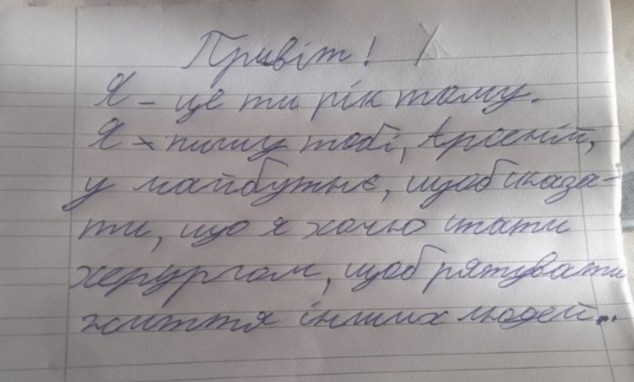 Привіт!
Я - це ти рік тому.
Я пишу тобі, Арсеній,
у майбутнє, щоб сказа-
ти, що я хочу стати
херургом, щоб рятувати
життя інших людей...